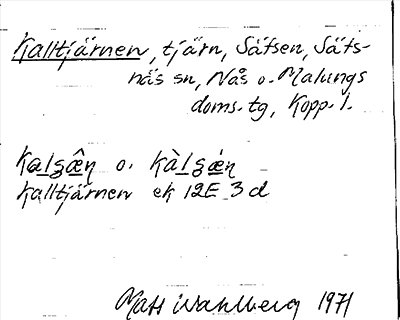 Kalltjärnen, tjärn, Säfsen, Säfs-
näs sn, Nås o. Malungs
doms. tg, Kopp. l.
kalʒæ̂ɳ o. kàlʒæ̀ɳ
Kalltjärnen ek 12E 3d
Mats Wahlberg 1971